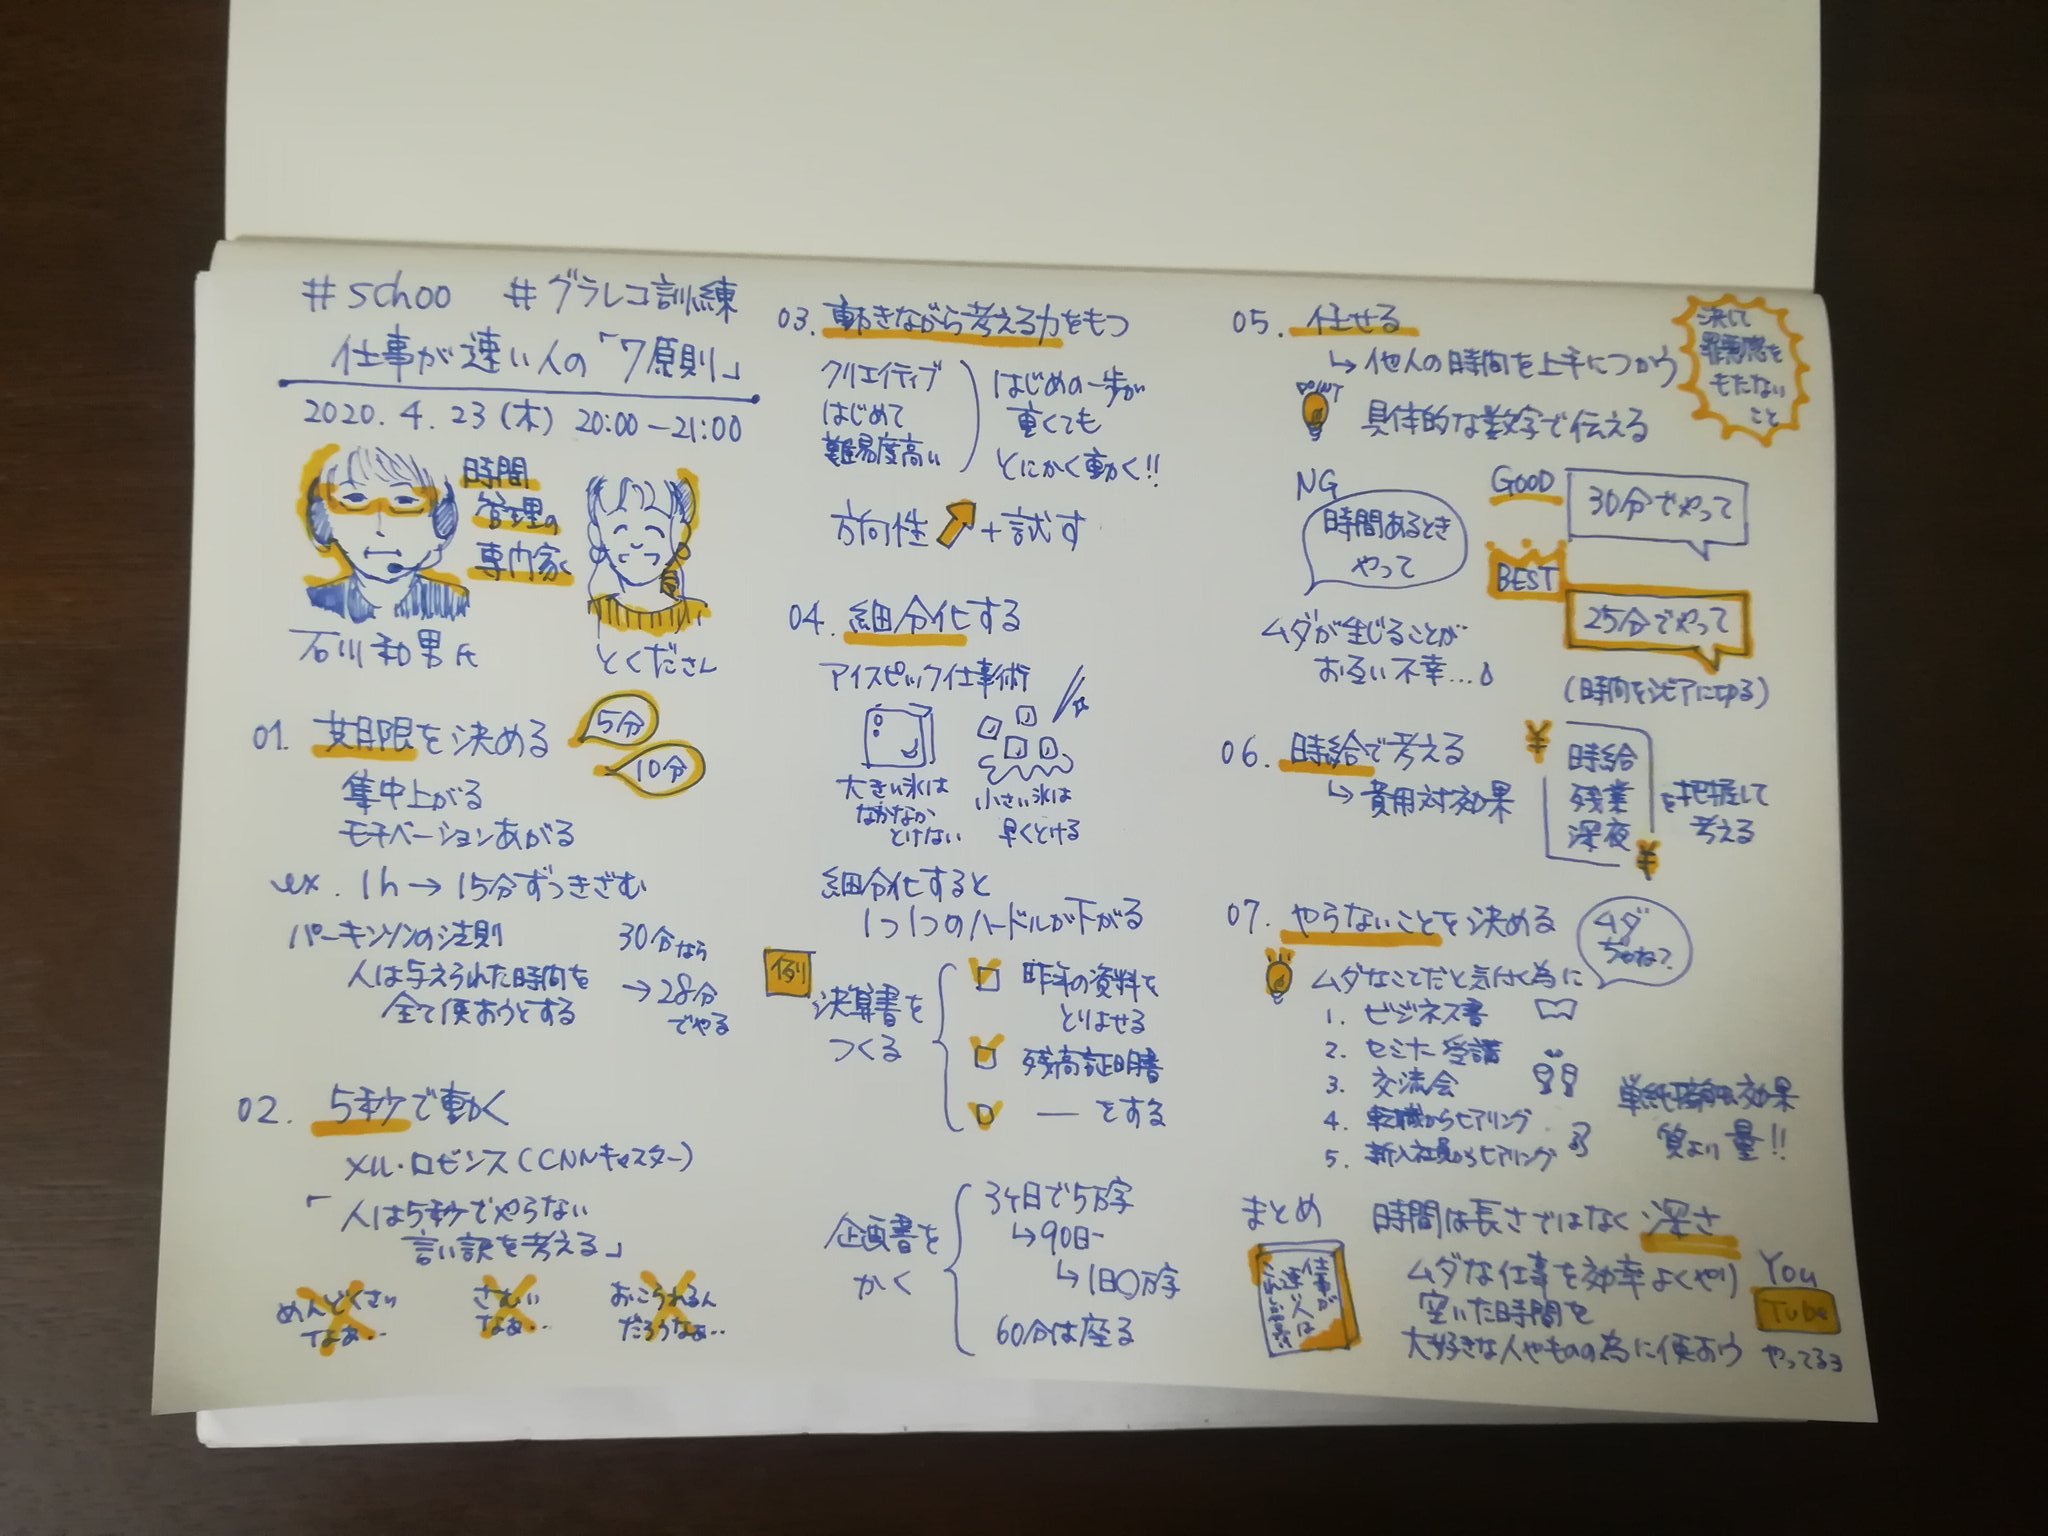 #schoo #グラレコ訓練
仕事が速い人の「7原則」
2020.4.23(木) 20:00-21:00
時間
管理の
専門家
石川和男氏
とくださん
01. 期限を決める
5分
10分
集中上がる
モチベーションあがる
ex. 1h→15分ずつきざむ
パーキンソンの法則
人は与えられた時間を
全て使おうとする
30分なら
→28分
でやる
02. 5秒で動く
メル・ロビンス(CNNキャスター)
「人は5秒でやらない
言い訳を考える」
めんどくさい
なぁ..
さむい
なぁ..
おこられるん
だろうなぁ..
03. 動きながら考える力をもつ
クリエイティブ
はじめて
難易度高い
はじめの一歩が
重くても
とにかく動く!!
方向性 +試す
04. 細分化する
アイスピック仕事術
大きい氷は
なかなか
とけない
小さい氷は
早くとける
細分化すると
1つ1つのハードルが下がる
例
決算書を
つくる
昨年の資料を
とりよせる
残高証明書
―をする
企画書を
かく
3ヶ月で5万字
↳90日-
↳1日〇万字
60分は座る
05. 任せる
↳他人の時間を上手につかう
決して
罪悪感を
もたない
こと
POINT
具体的な数字で伝える
NG
時間あるとき
やって
ムダが生じることが
お互い不幸...
GOOD
30分でやって
BEST
25分でやって
(時間をシビアにゆる)
06. 時給で考える
↳費用対効果
¥
時給
残業
深夜
¥
を把握して
考える
07. やらないことを決める
ムダ
ちゃね?
ムダなことだと気付く為に
1. ビジネス書
2. セミナー受講
3. 交流会
4. 転職からヒアリング
5. 新入社員からヒアリング
単純接触効果
質より量!!
まとめ
時間は長さではなく深さ
仕事が
速い人は
ムダな仕事を効率よくやり
空いた時間を
大好きな人やものの為に使おう
You
Tube
やってるヨ